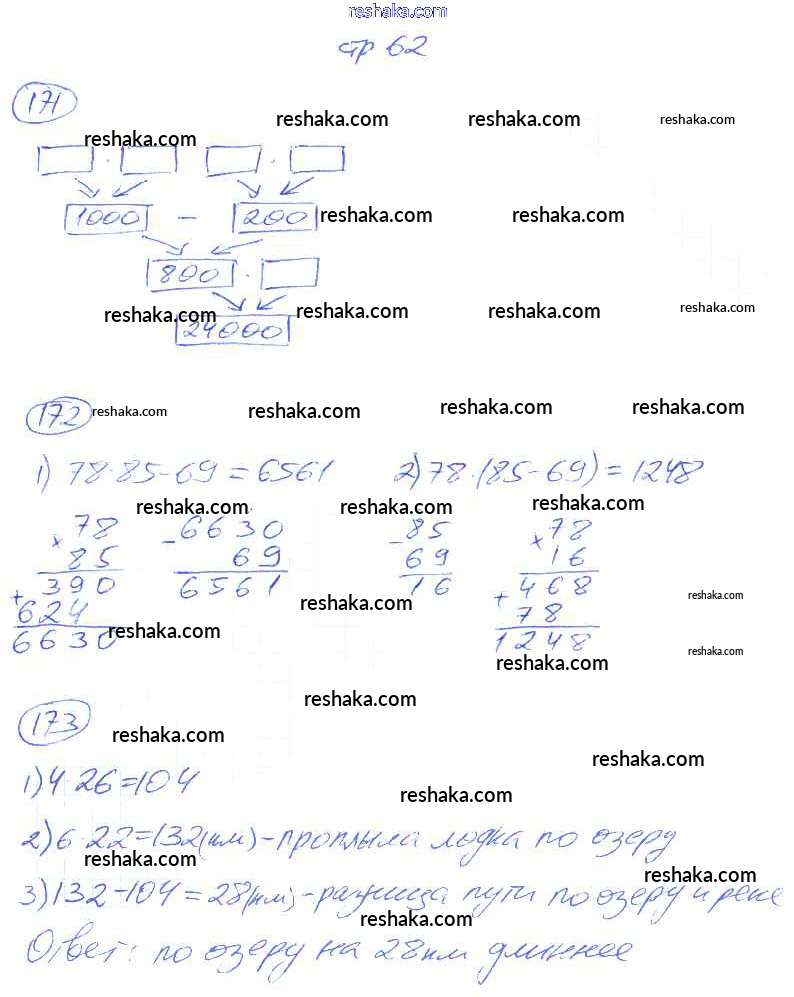 reshaka.com
стр 62
171
reshaka.com reshaka.com reshaka.com
reshaka.com
· ·
1000 - 200 reshaka.com reshaka.com
800 ·
reshaka.com reshaka.com reshaka.com reshaka.com
24000
172 reshaka.com reshaka.com reshaka.com reshaka.com
1) 78·85-69=6561 2) 78·(85-69)=1248
reshaka.com reshaka.com reshaka.com
× 78 - 6630 - 85 × 78
85 69 69 16
+ 390 6561 16 + 468
624 reshaka.com reshaka.com 78
6630 reshaka.com 1248
reshaka.com reshaka.com
reshaka.com
173 reshaka.com
reshaka.com
1) 4·26=104
reshaka.com
2) 6·22=132(км)-проплыла лодка по озеру
reshaka.com reshaka.com
3) 132-104=28(км)-разница пути по озеру и реке
reshaka.com
Ответ: по озеру на 28км длиннее